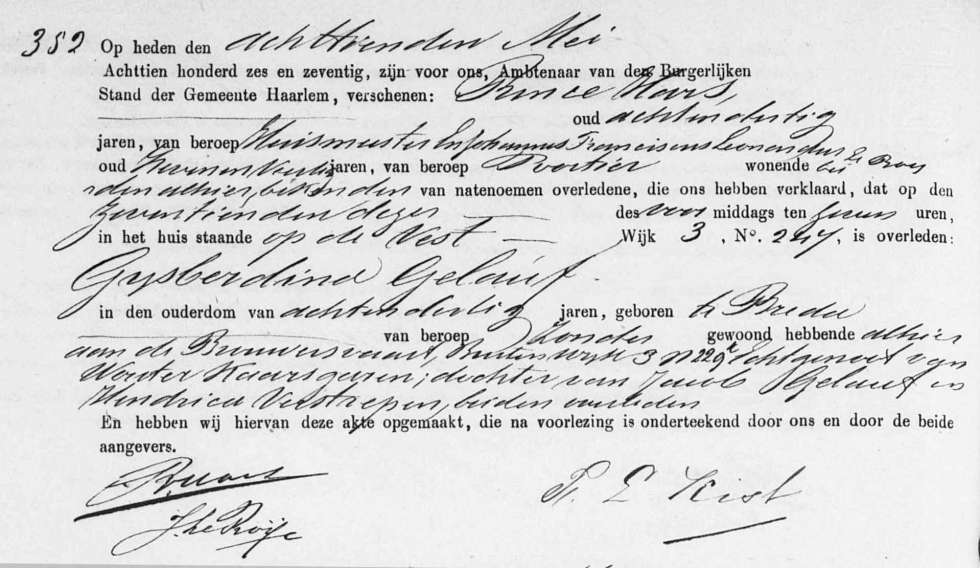 352 Op heden den achttienden Mei
Achttien honderd zes en zeventig, zijn voor ons, Ambtenaar van den Burgerlijken
Stand der Gemeente Haarlem, verschenen: Prince
oud achtendertig
jaren, van beroep Huismeester En Johannes Franciscus Leonardus
oud jaren, van beroep Portier wonende
van natenoemen overledene, die ons hebben verklaard, dat op den
Zeventienden dezer des voor middags ten zeven uren,
in het huis staande op de Vest Wijk 3, No. 247, is overleden:
Gijsberdina Gelauf
in den ouderdom van achtendertig jaren, geboren te Breda
van beroep Zonder gewoond hebbende alhier
aan de Brouwersvaart, Buiten Wijk 3 N 229 Echtgenoot van
Wouter Kaarsgaren; dochter van Jacob Gelauf en
Hendrica Verstrepen, beiden overleden
En hebben wij hiervan deze akte opgemaakt, die na voorlezing is onderteekend door ons en door de beide
aangevers.
Kist